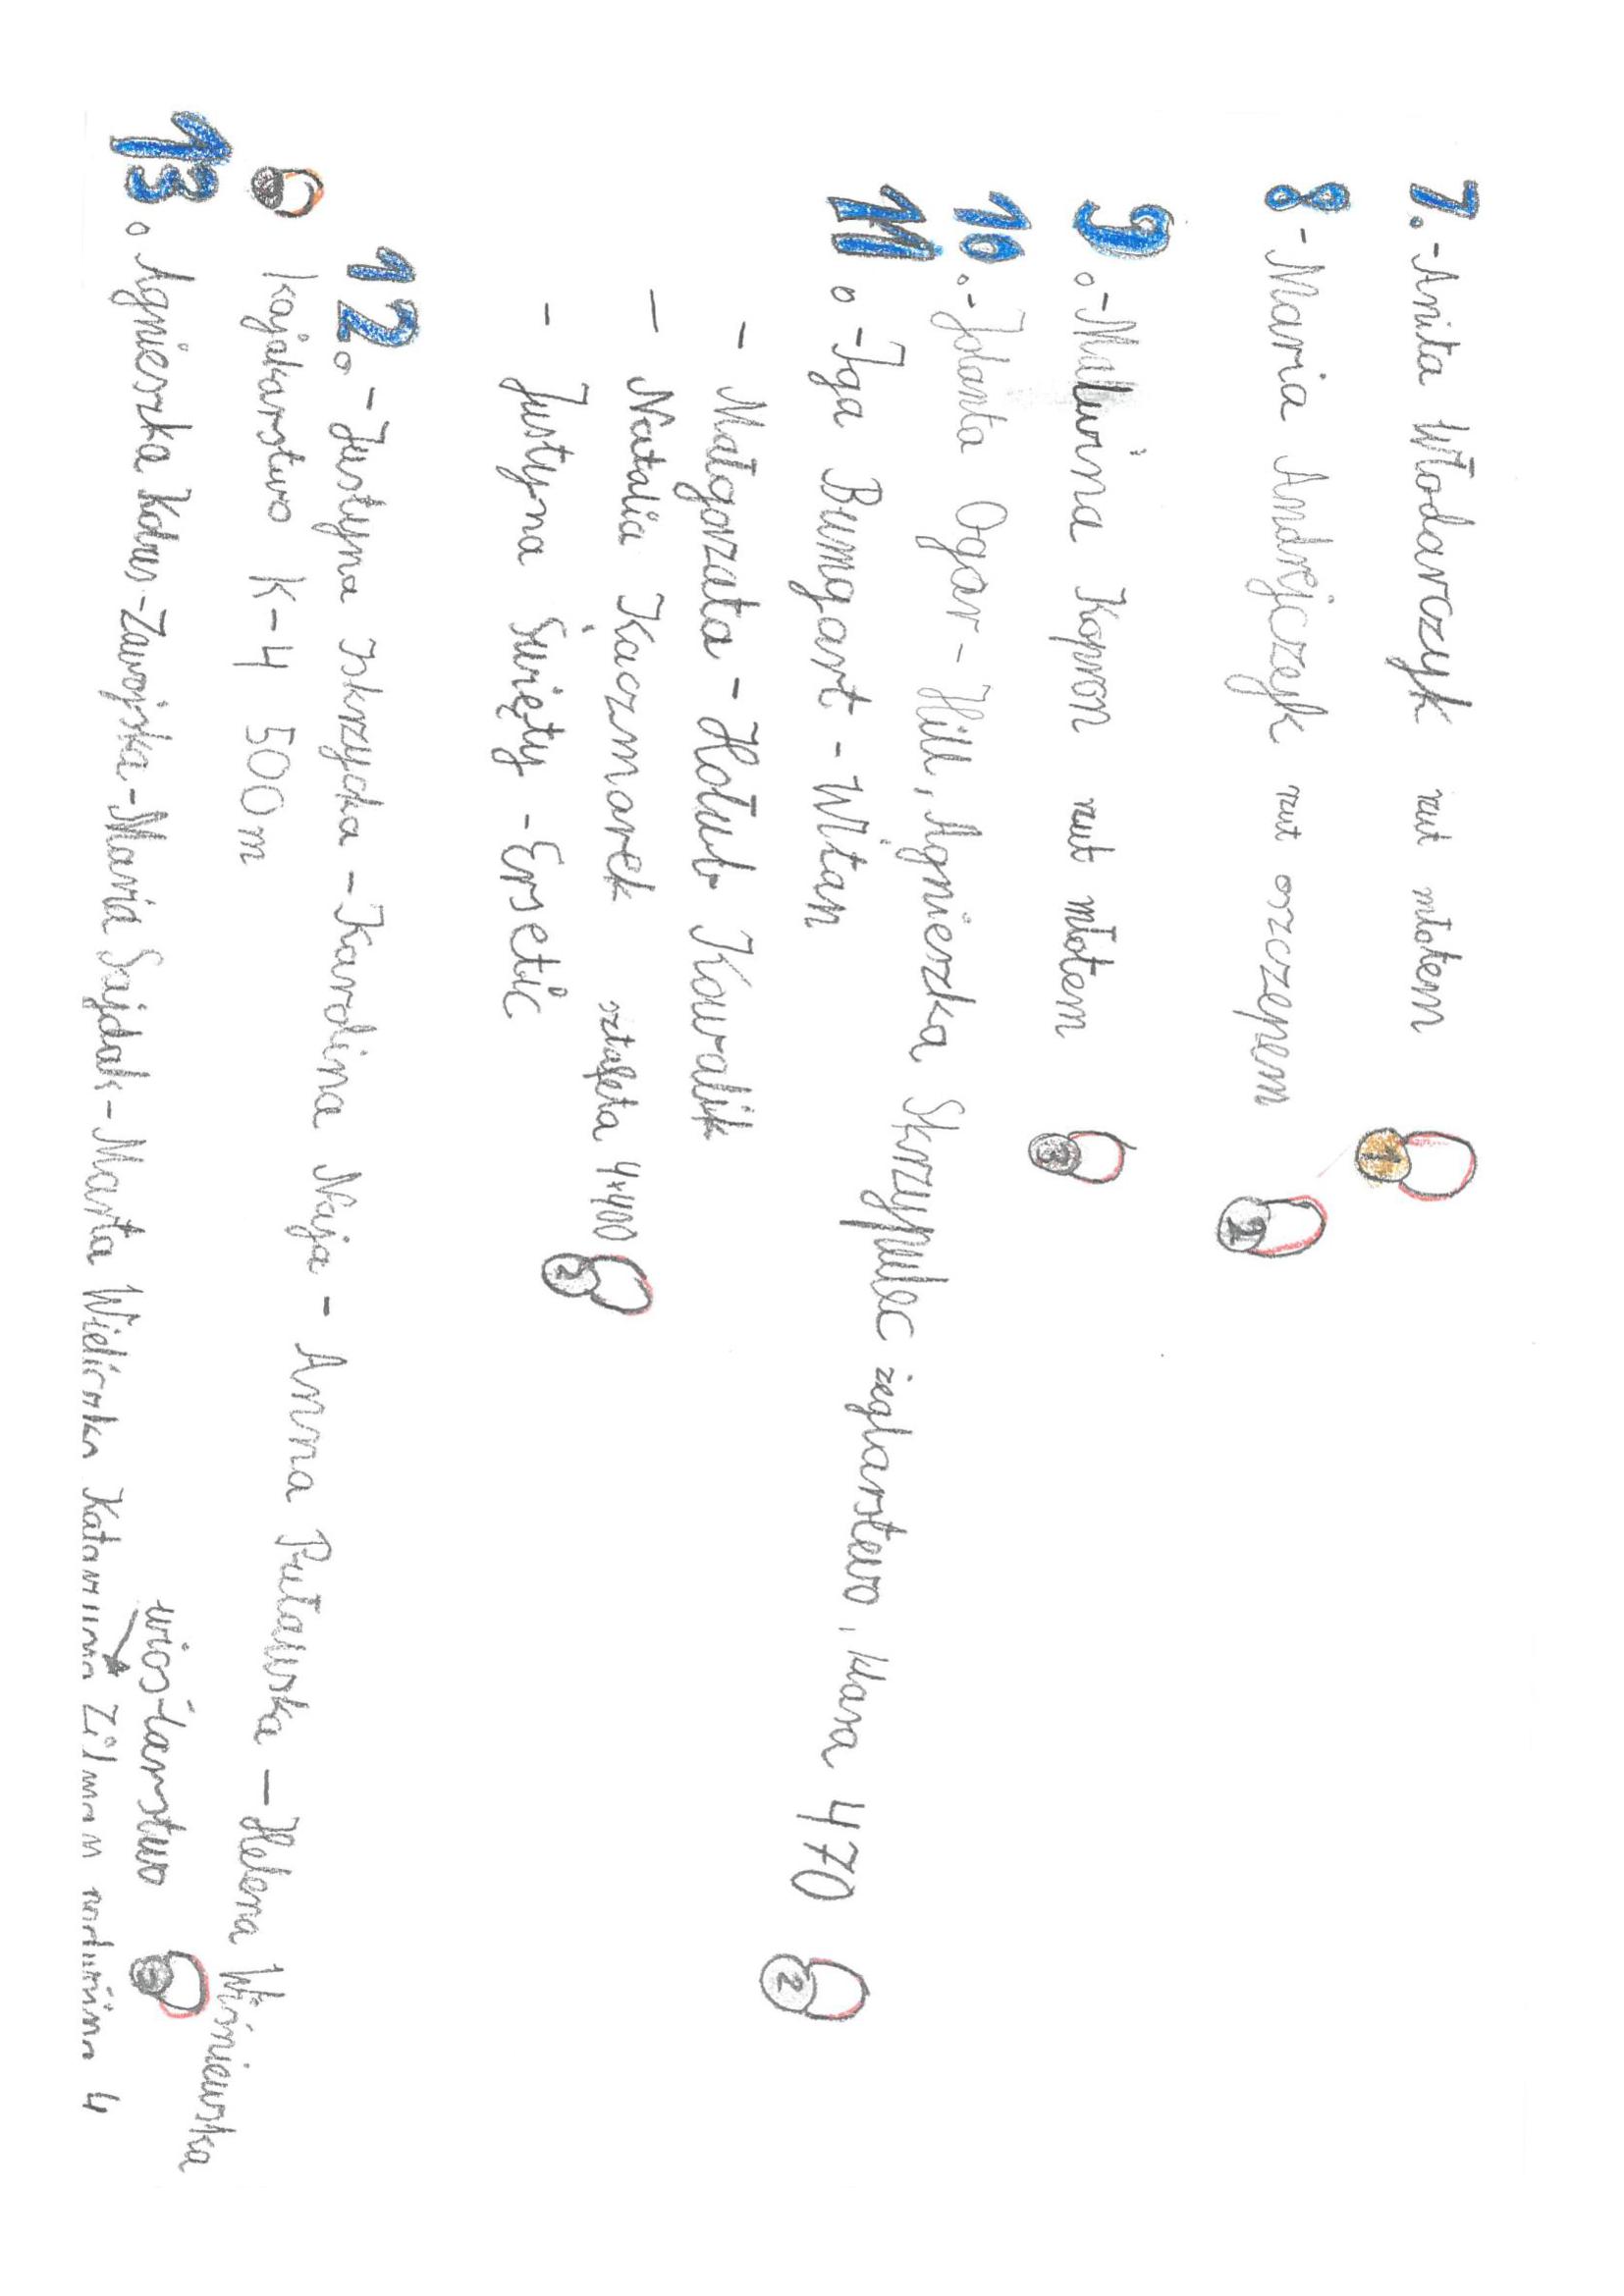 7. - Anita Włodarczyk rzut młotem 1
8 - Maria Andrejczejk rzut oszczepem 2
9. - Malwina Kopron rzut młotem 3
10. - Jolanta Ogar - Hill, Agnieszka Skrzypulec żeglarstwo, klasa 470 2
11. - Iga Bumgart - Witan
- Małgorzata - Hołub Kowalik
- Natalia Kaczmarek sztafeta 4x400 2
- Justyna Święty - Ersetic
12. - Justyna Iskrzycka - Karolina Naja - Anna Puławska - Helena Wiśniewska
kajakarstwo K-4 500m
wioślarstwo 3
13. Agnieszka Kobus-Zawojska-Maria Sajdak-Marta Wieliczko Katarzyna Zilman 4